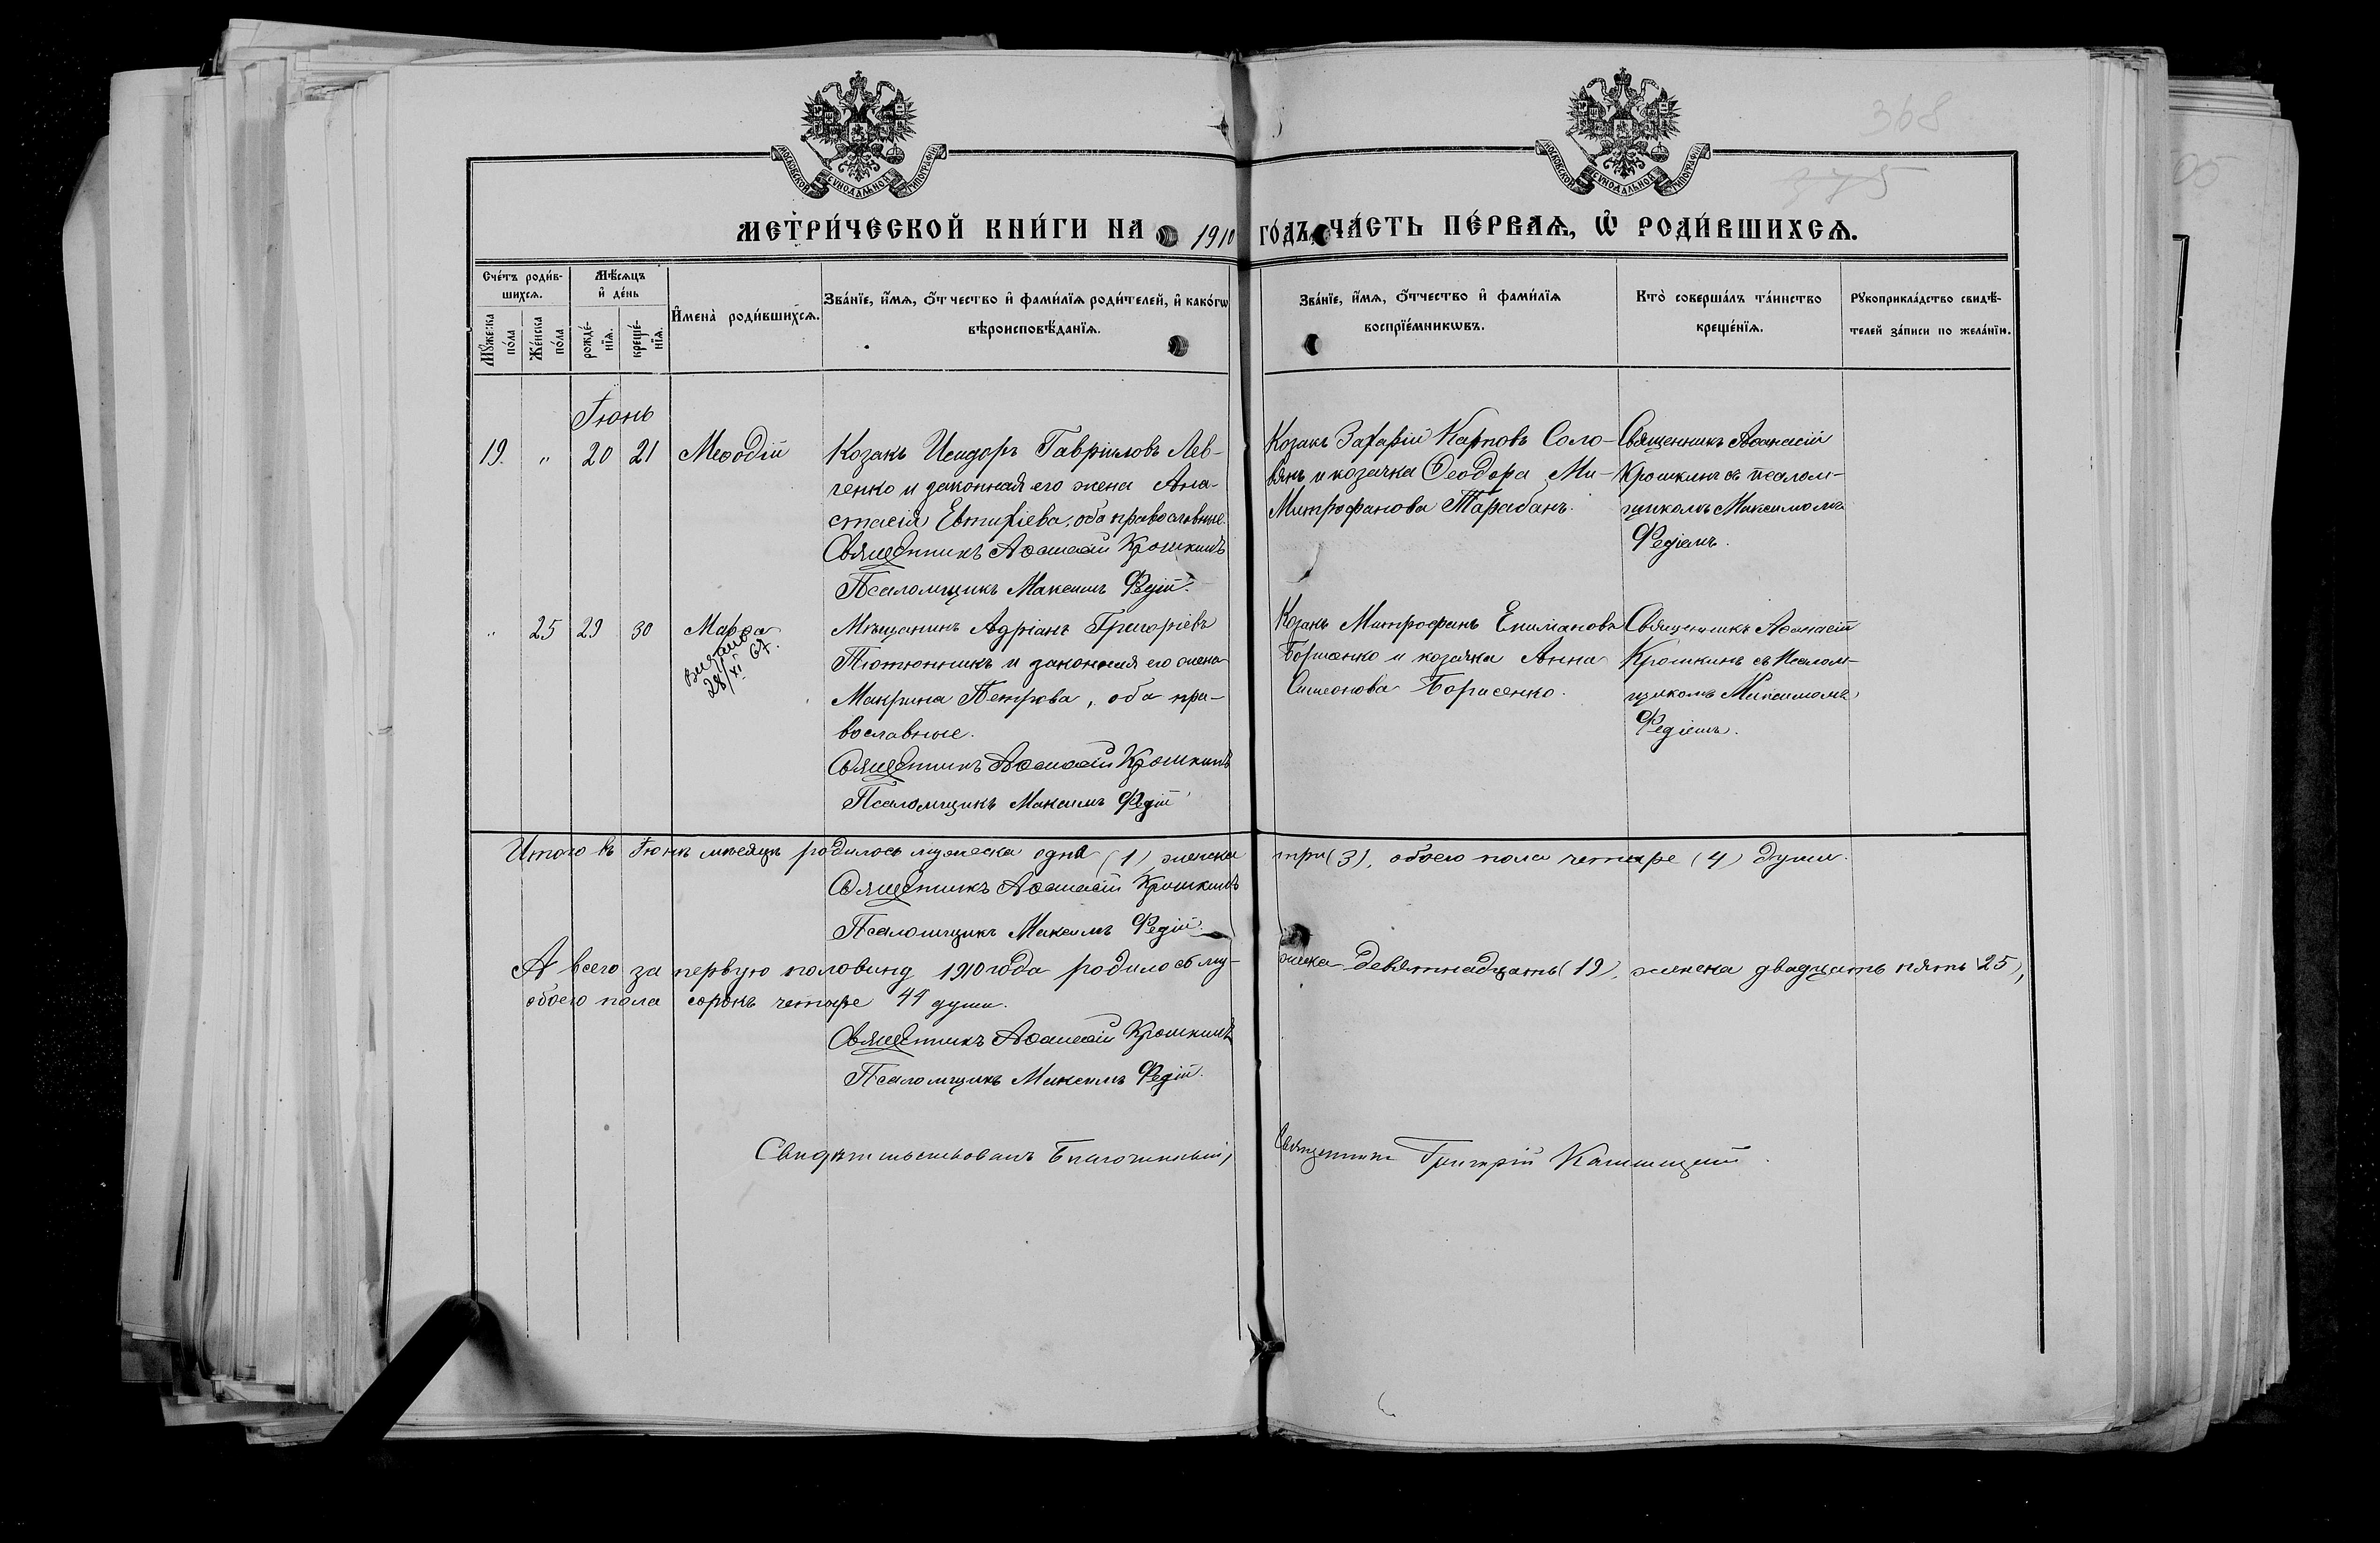 368
375
МОСКОВСКОЙ СѴНОДАЛЬНОЙ ТИПОГРАФІИ
МОСКОВСКОЙ СѴНОДАЛЬНОЙ ТИПОГРАФІИ
МЕТРИ́ЧЕСКОЙ КНИ́ГИ НА 1910 ГО́ДЪ, ЧА́СТЬ ПЕ́РВАѦ, Ѽ РОДИ́ВШИХСѦ.
Сче́тъ роди́в-
шихсѧ.
Мѣ́сѧцъ
и҆ де́нь
Мꙋ́жеска
по́ла
Же́нска
по́ла
рожде́-
нїѧ.
креще́-
нїѧ.
И҆мена̀ роди́вшихсѧ.
Зва́нїе, и҆́мѧ, ѻ҆́тчество и҆ фами́лїѧ роди́телей, и҆ како́гѡ
вѣроисповѣ́данїѧ.
Зва́нїе, и҆́мѧ, ѻ҆́тчество и҆ фами́лїѧ
воспрїе́мникѡвъ.
Кто̀ соверша́лъ та́инство
креще́нїѧ.
Рꙋкоприкла́дство свидѣ́-
телей за́писи по жела́нїю.
Іюнь
19. " 20 21 Меѳодій
Козакъ Исидоръ Гавріиловъ Лев-
ченко и законная его жена Ана-
стасія Евтихіева, оба православные.
Священникъ Аѳанасій Крошкинъ
Псаломщикъ Максимъ Федій.
Козакъ Захарій Карповъ Соло-
вянъ и козачка Ѳеодора Ми-
Митрофанова Тарабанъ.
Священникъ Аѳанасій
Крошкинъ съ псалом-
щикомъ Максимомъ
Федіемъ.
" 25 29 30 Марѳа
Видано
28/XI 67.
Мѣщанинъ Адріанъ Григоріевъ
Тютюнникъ и законная его жена
Макрина Петрова, оба пра-
вославные.
Священникъ Аѳанасій Крошкинъ
Псаломщикъ Максимъ Федій
Козакъ Митрофанъ Епимановъ
и козачка Анна
Симеонова Борисенко.
Священникъ Аѳанасій
Крошкинъ съ псалом-
щикомъ Максимомъ
Федіемъ.
Итого въ Іюнѣ мѣсяцѣ родилось мужеска одна (1) женска три (3), обоего пола четыре (4) души.
Священникъ Аѳанасій Крошкинъ
Псаломщикъ Максимъ Федій.
А всего за первую половину 1910 года родилось му-жеска девятнадцать (19), женска двадцать пять (25),
обоего пола сорокъ четыре 44 души.
Священникъ Аѳанасій Крошкинъ
Псаломщикъ Максимъ Федій.
Свидѣтельствовалъ Благочинный, Священникъ Григорій